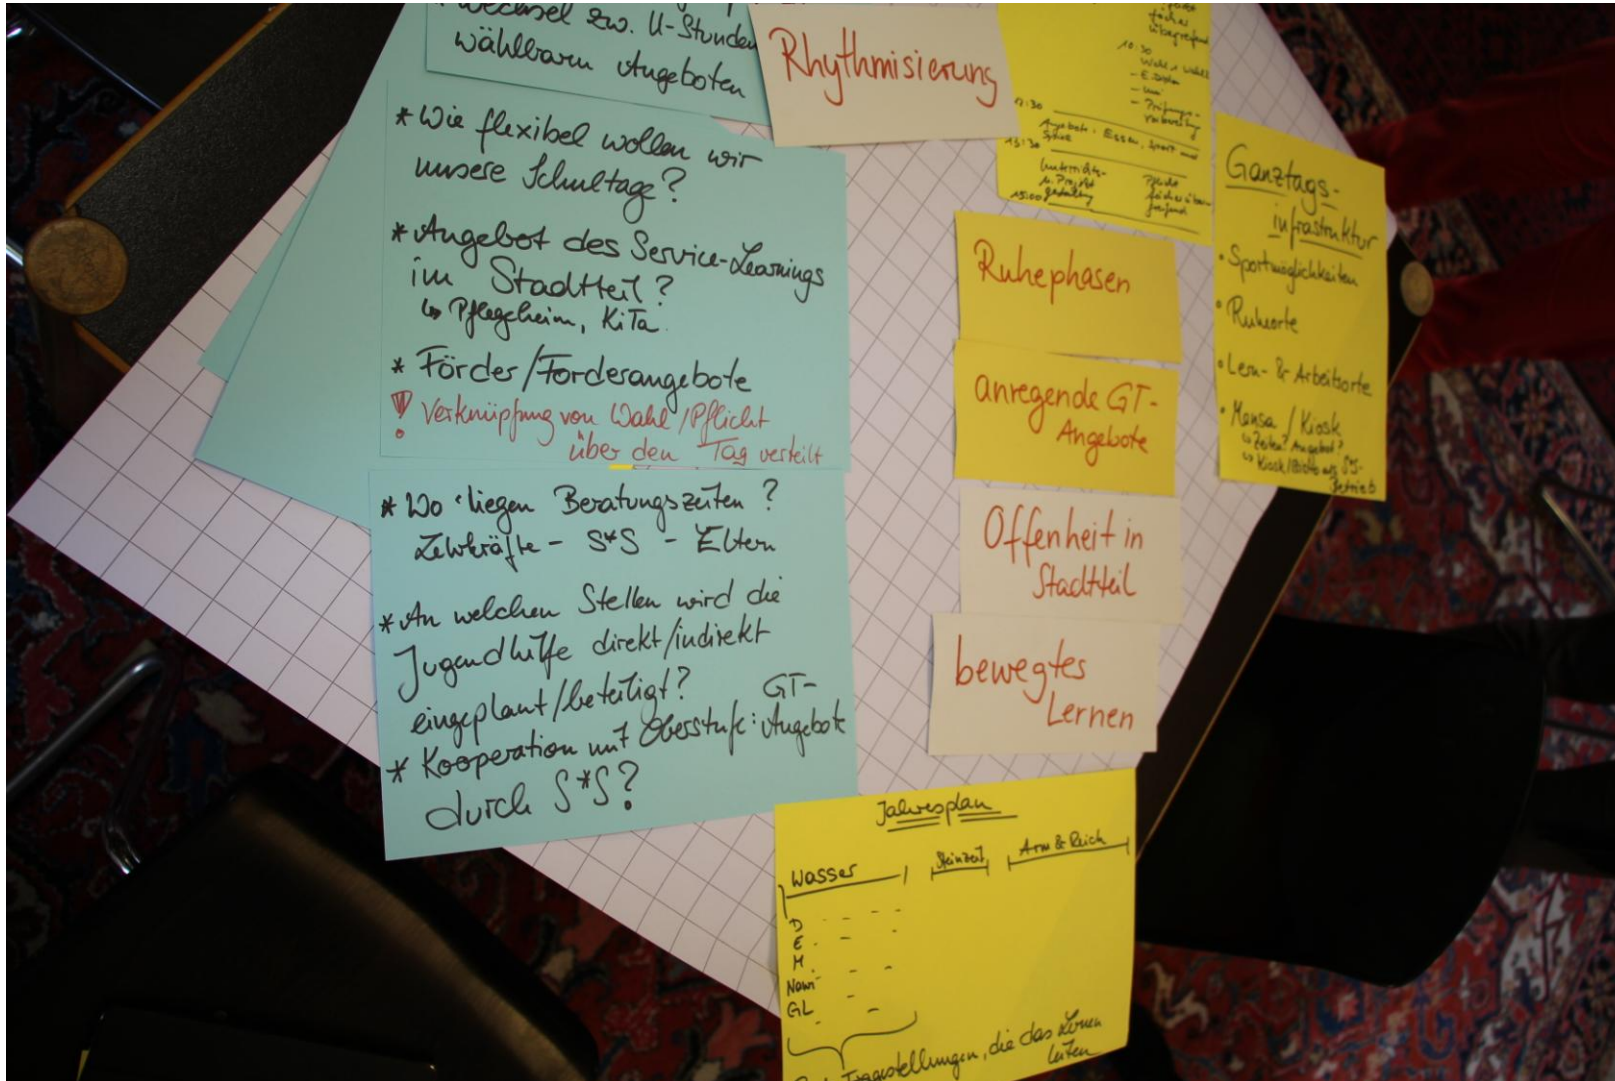 Wechsel zw. U-Stunden
wählbarn Angeboten
* Wie flexibel wollen wir
unsere Schultage?
* Angebot des Service-Learnings
im Stadtteil?
↳ Pflegeheim, KiTa.
* Förder/Forderangebote
! Verknüpfung von Wahl/Pflicht
über den Tag verteilt
* Wo liegen Beratungszeiten?
Lehrkräfte - S*S - Eltern
* An welchen Stellen wird die
Jugendhilfe direkt/indirekt
eingeplant/beteiligt?
* Kooperation mit Oberstufe: GT-
Angebote
durch S*S?
Rhythmisierung
fächer
übergreifend
10:30
- Prüfungs-
vorbereitung
13:30
Angebote: Essen, Sport und
Spiele
Unterrichts-
u. Projekt
gestaltung
15:00
Ruhephasen
anregende GT-
Angebote
Offenheit in
Stadtteil
bewegtes
Lernen
Ganztags-
infrastruktur
• Sportmöglichkeiten
• Ruheorte
• Lern- & Arbeitsorte
• Mensa / Kiosk
↳ Zeiten? Angebot?
↳ Kiosk/Bistro als S*S-
Betrieb
Jahresplan
Wasser
Steinzeit
Arm & Reich
D
E
M
Nawi
GL
Fragestellungen, die das Lernen
leiten